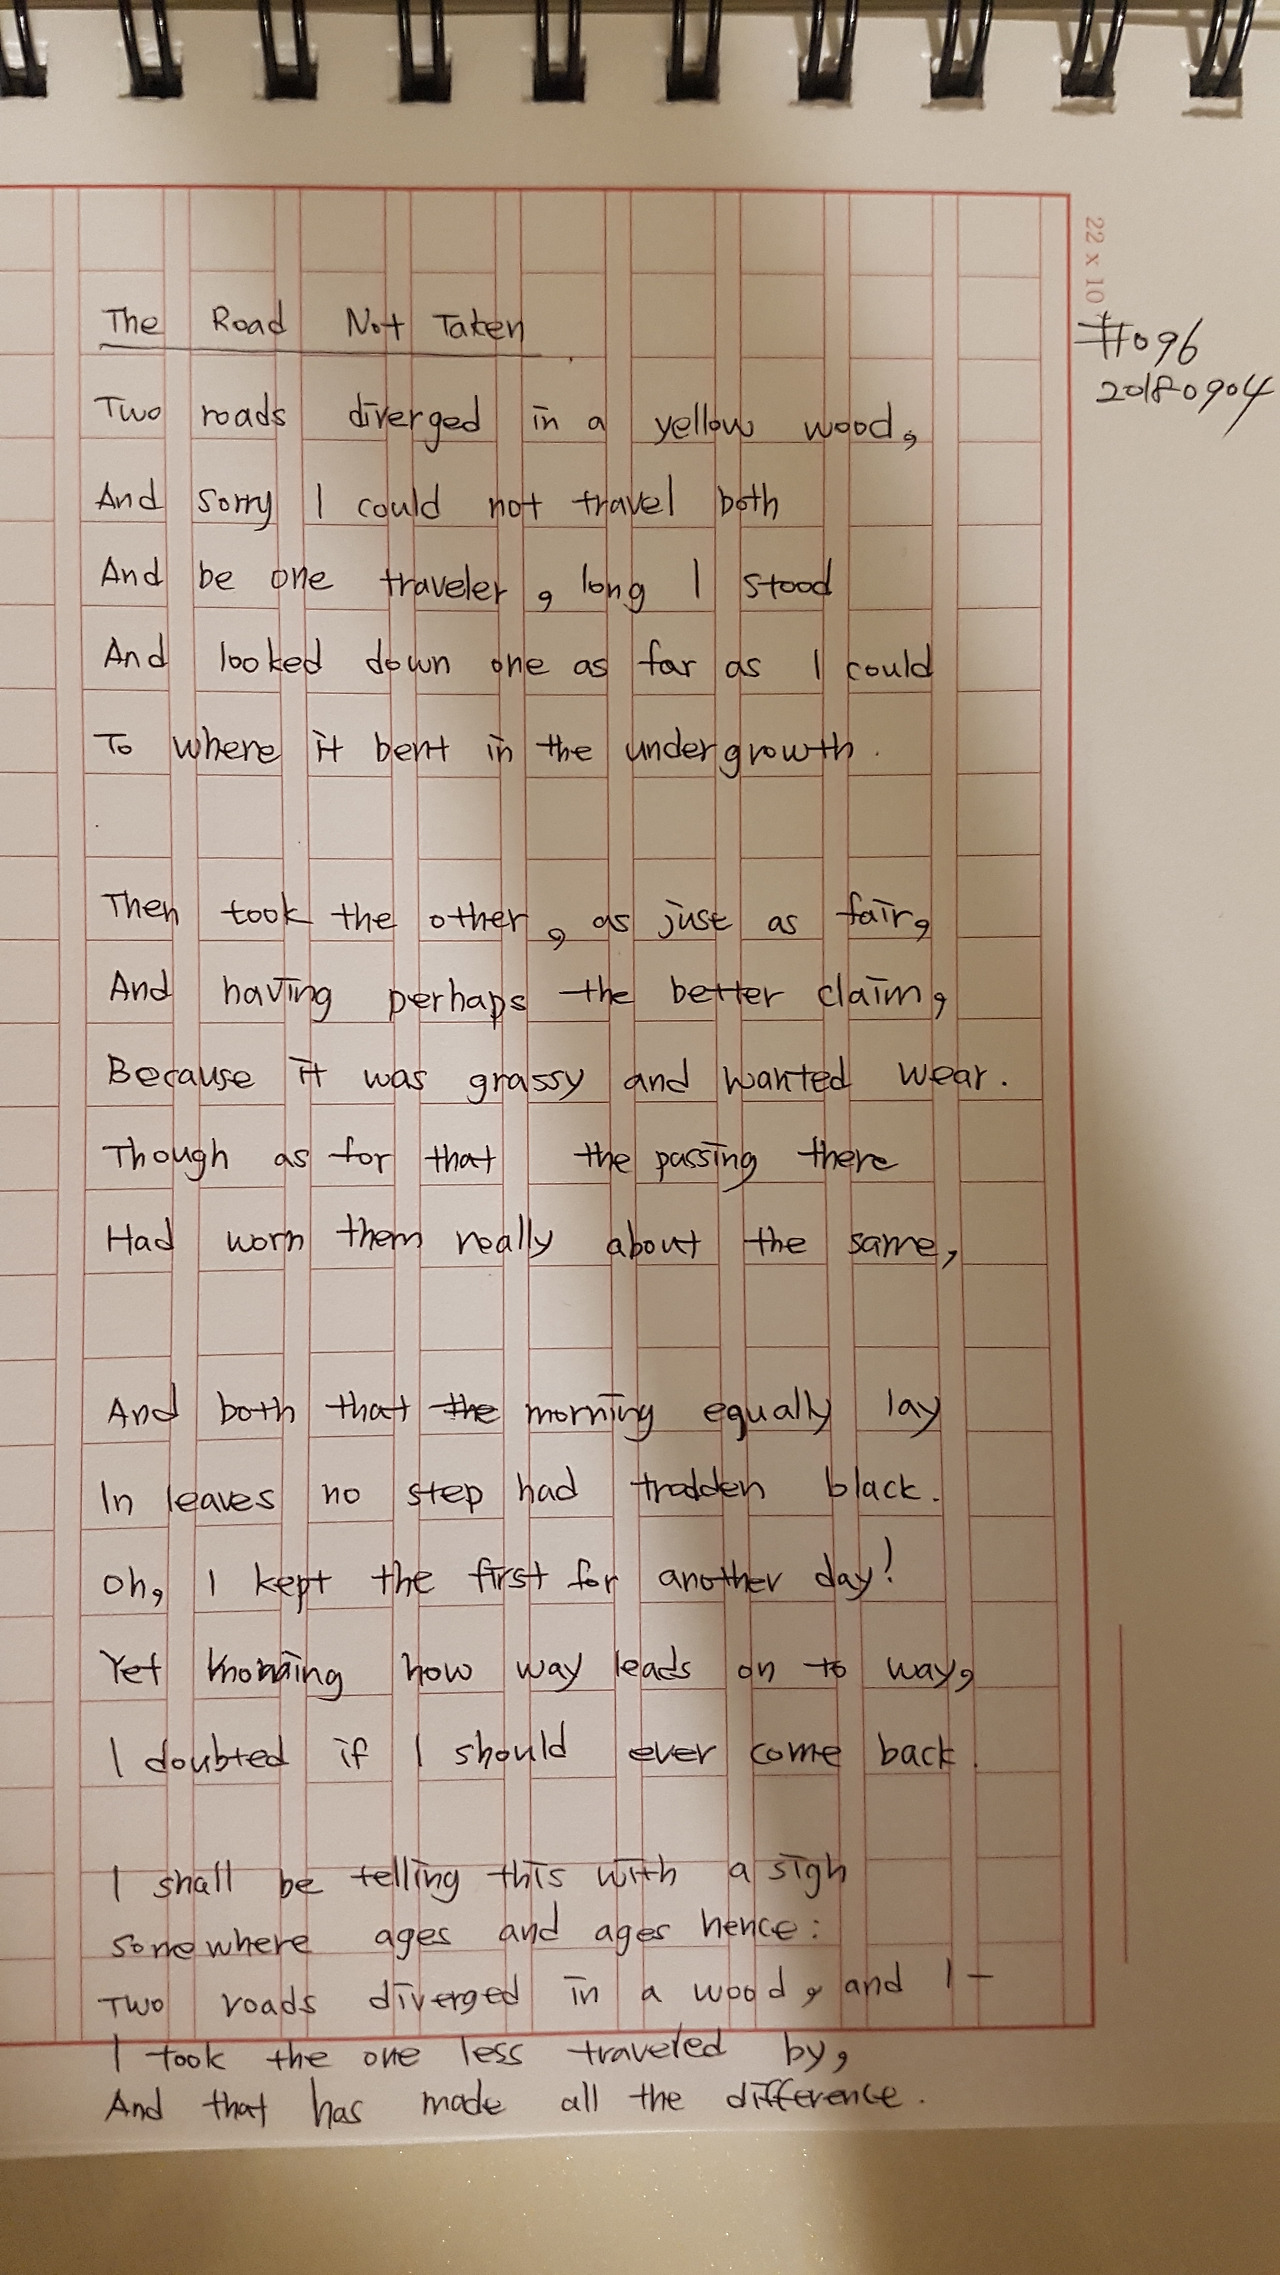 22 x 10
#096
20180904
The Road Not Taken
Two roads diverged in a yellow wood,
And sorry I could not travel both
And be one traveler, long I stood
And looked down one as far as I could
To where it bent in the undergrowth.
Then took the other, as just as fair,
And having perhaps the better claim,
Because it was grassy and wanted wear.
Though as for that the passing there
Had worn them really about the same,
And both that the morning equally lay
In leaves no step had trodden black.
Oh, I kept the first for another day!
Yet knowing how way leads on to way,
I doubted if I should ever come back.
I shall be telling this with a sigh
somewhere ages and ages hence:
Two roads diverged in a wood, and I -
I took the one less traveled by,
And that has made all the difference.